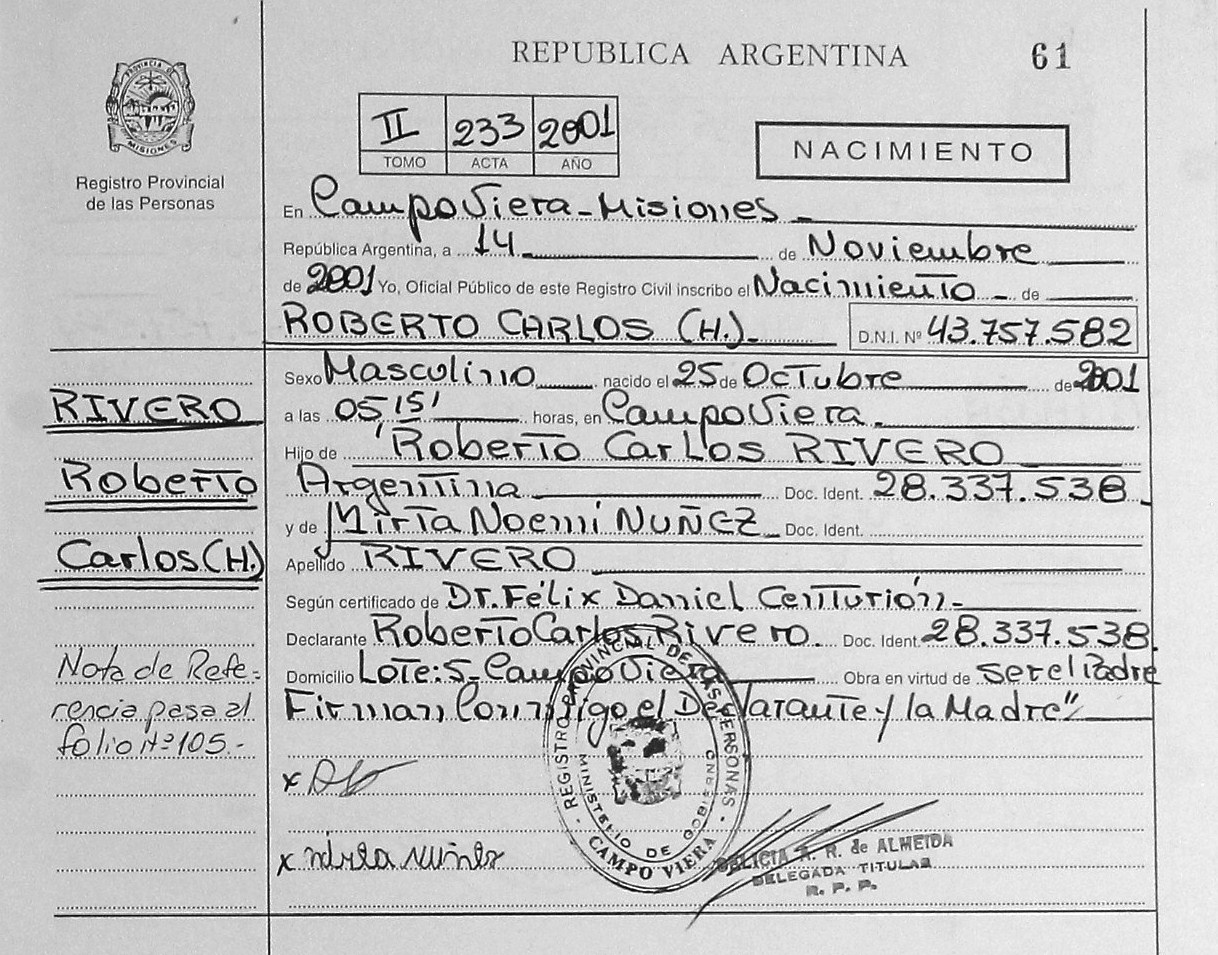 REPUBLICA ARGENTINA 61
PROVINCIA DE
MISIONES
Registro Provincial
de las Personas
II 233 2001
TOMO ACTA AÑO
NACIMIENTO
En Campo Viera - Misiones -
República Argentina, a 14 de Noviembre
de 2001 Yo, Oficial Público de este Registro Civil inscribo el Nacimiento - de
ROBERTO CARLOS (H.) D.N.I. Nº 43.757.582
Sexo Masculino nacido el 25 de Octubre de 2001
RIVERO
a las 05,15' horas, en Campo Viera.
Hijo de Roberto Carlos RIVERO
Roberto
Argentina Doc. Ident. 28.337.538
y de Mirta Noemí NUÑEZ Doc. Ident.
Carlos (H.)
Apellido RIVERO
Según certificado de Dr. Félix Daniel Centurión -
Declarante Roberto Carlos Rivero. Doc. Ident. 28.337.538
Domicilio Lote: 5 - Campo Viera Obra en virtud de ser el Padre
Firman Conmigo el Declarante y la Madre"
Nota de Refe-
rencia pasa al
folio Nº 105.-
REGISTRO PROVINCIAL DE LAS PERSONAS
MINISTERIO DE GOBIERNO
- CAMPO VIERA -
x
x mirta nuñez
DELICIA A. R. de ALMEIDA
DELEGADA TITULAR
R. P. P.